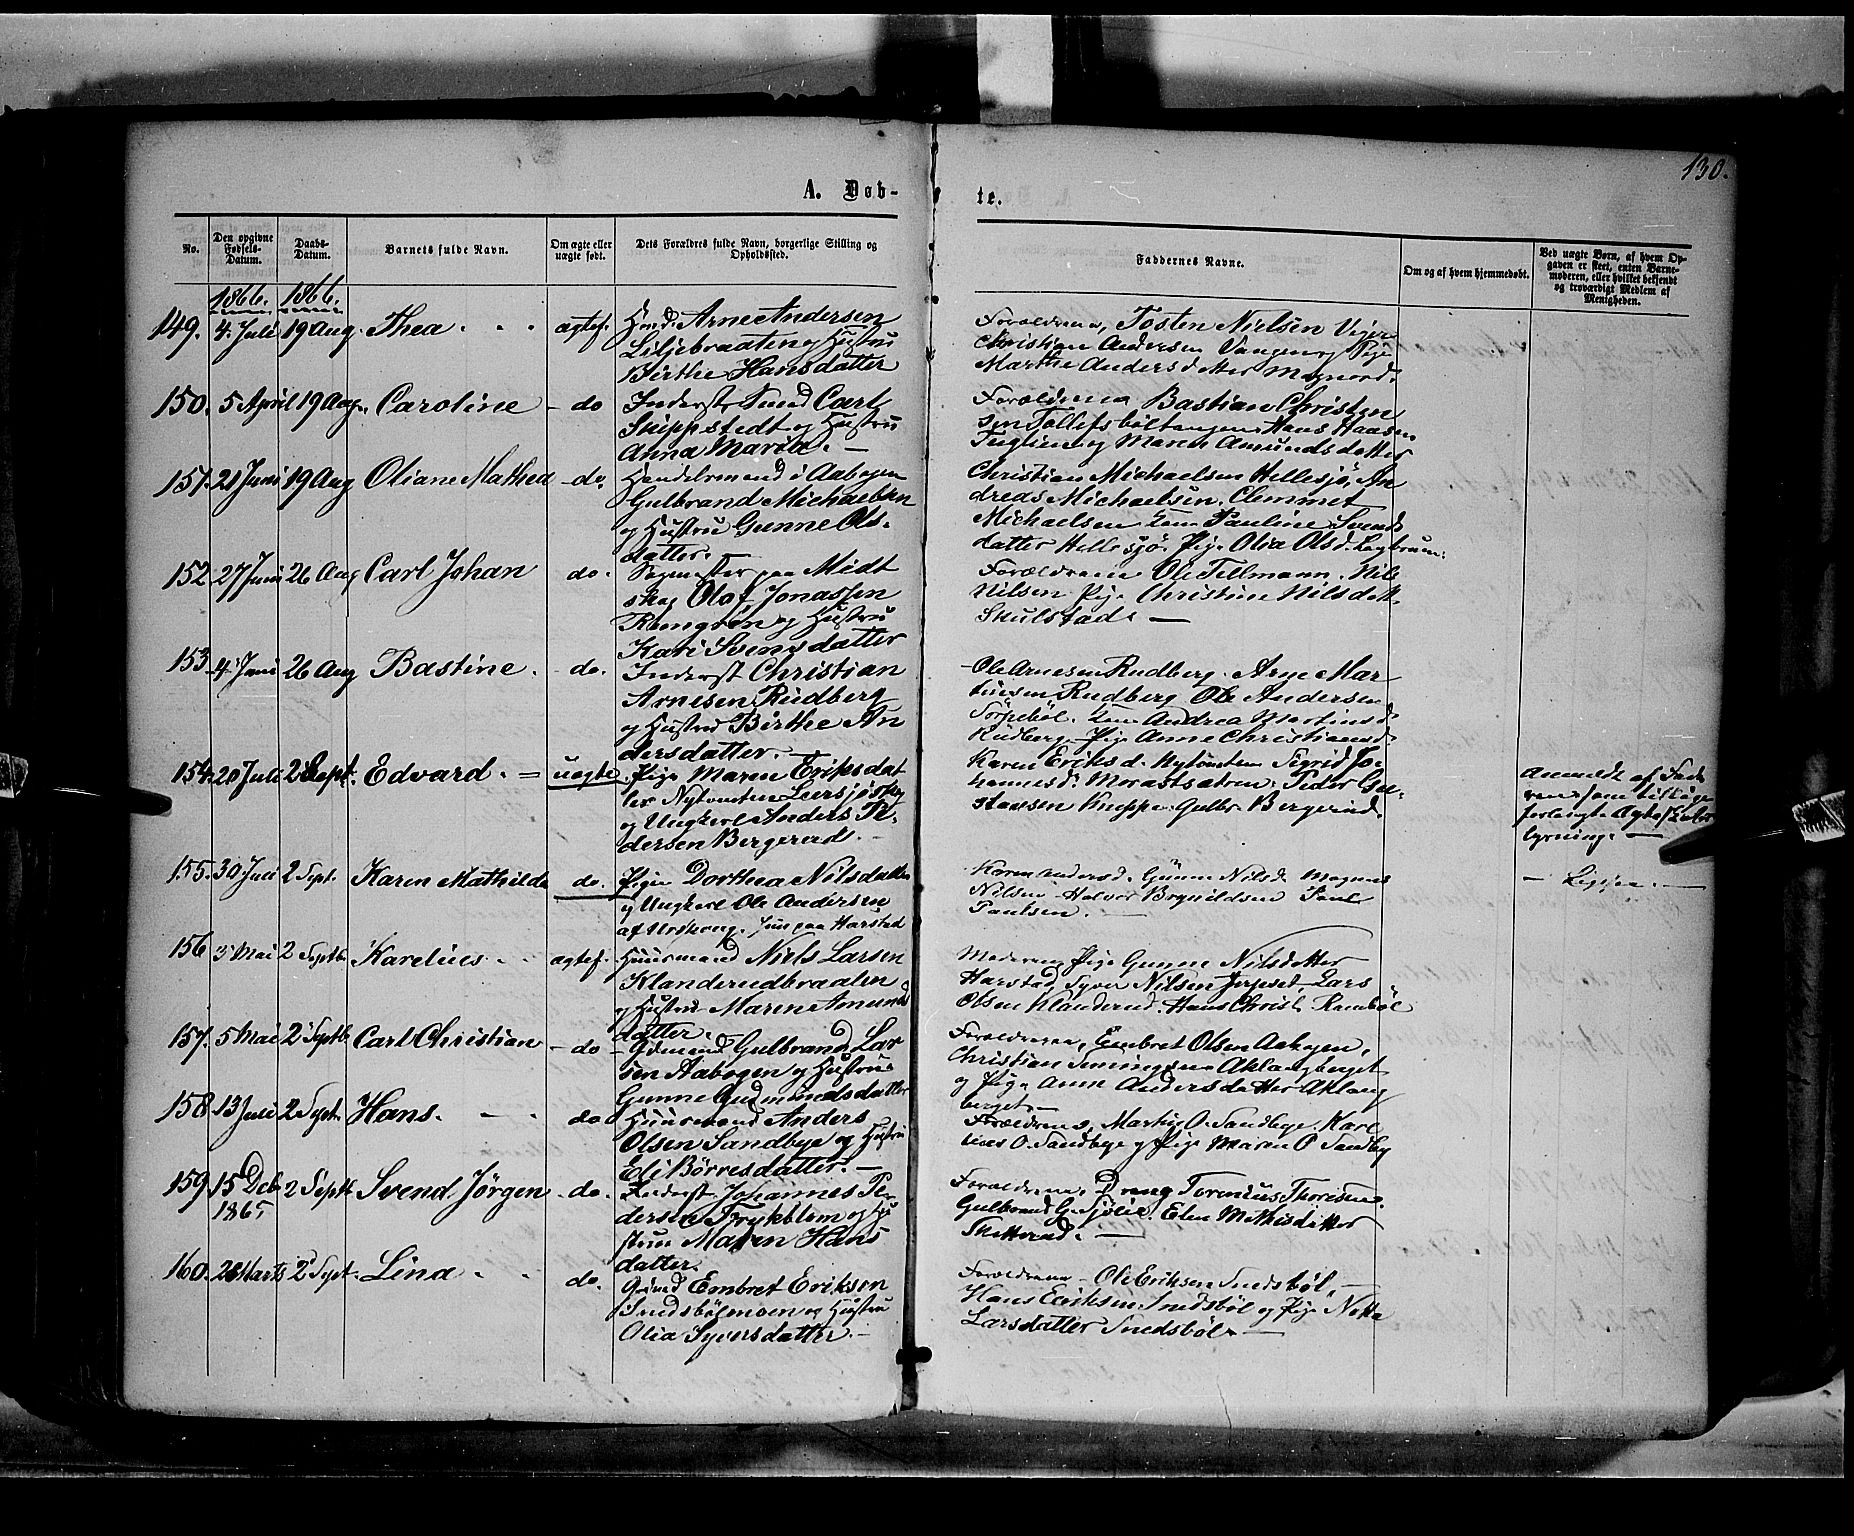 130.
A. Døb-
te.
No.
Den opgivne Fødsels-Datum.
Daabs-Datum.
Barnets fulde Navn.
Om ægte eller uægte født.
Dets Forældres fulde Navn, borgerlige Stilling og Opholdssted.
Faddernes Navne.
Om og af hvem hjemmedøbt.
Ved uægte Børn, af hvem Opgaven er skeet, enten Barnemoderen, eller hvilket bekjendt og troværdigt Medlem af Menigheden.
1866. 1866.
149. 4 Juli 19 Aug. Thea ægtef.
Arne Andersen
Liljebraaten og Hustru
Birthe Hansdatter
Forældrene, Tosten Nielsen
Christian Andersen Vangen og Pige
Marthe Andersdatter Magnord.
150. 5 April 19 Aug. Caroline - do
Inderst Svend Carl
Skippstedt og Hustru
Anna Maria. -
Forældrene Bastian Christen
sen Tollefsbøltangen Hans
og Maren Amundsdatter
151. 21 Juni 19 Aug Oliane Mathea - do.
Handelsmand i Aabogen
Gulbrand Michaelsen
og Hustru Gunne Ols-
datter. -
Christian Michaelsen Hellesjø, An
dreas Michaelsen. Clemmet
Michaelsen Pauline Svends
datter Hellesjø. Pige Olia Olsd.
152. 27 Juni 26 Aug Carl Johan do.
paa Midt
skog Olof Jonassen
og Hustru
Kari Svensdatter
Forældrene Ole Tillmann. Nils
Nilsen Pige Christine Nilsdatt.
Skulstad. -
153. 4 Juni 26 Aug Bastine. - do.
Inderst Christian
Arnesen Rudberg
og Hustru Birthe An
dersdatter. -
Ole Arnesen Rudberg. Arne Mar
tinsen Rudberg Ole Andersen
Sørpebøl. Andrea Martinsd.
Rudberg. Pige Anne Christiansd.
154. 20 Juli 2 Sept. Edvard. - = uægte
Pige Maren Eriksdat
ter Nytomten Leersjøskog
og Ungkarl Anders Pe-
dersen Bergerud. -
Karen Eriksd. Nytomten Sigrid Jo-
hannesd. Morastsætren. Peder Gu-
stavsen Gulbr. Bergerud.
Anmeldt af
forlangte Ægte
lysning. -
155. 30 Juli 2 Sept. Karen Mathilde do.
Pige Dorthea Nilsdatter
og Ungkarl Ole Andersen
af Urskoug. paa Harstad
Karen Andersd. Gunne Nilsd. Magnus
Nilsen Halvor Brynildsen Paul
Paulsen. -
- Ligesaa. -
156 3 Mai 2 Septb. Karelius ægtef.
Huusmand Niels Larsen
Klanderudbraaten
og Hustru Maren Amunds
datter.
Moderen Pige Gunne Nilsdatter
Harstad, Syver Nilsen Lars
Olsen Klanderud. Hans Christ.
157. 5 Mai 2 Septb. Carl Christian - do
Gulbrand Lar
sen Aabogen og Hustru
Gunne Gudmundsdatter
Forældrene, Embret Olsen Aabogen,
Christian Aklangberget
og Pige Anne Andersdatter Aklang
berget. -
158 13 Juli 2 Sept. Hans. - do
Huusmand Anders
Olsen Sandbye og Hustru
Eli Børresdatter. -
Forældrene, Martin O. Sandbye. Kare
lius O. Sandbye og Pige Maren O Sandby
159 15 Deb 2 Septb Svend Jørgen - do.
1865
Inderst Johannes Pe-
dersen Frykblem og Hu
stru Maren Hans
datter.
Forældrene, Dreng Torenius Thoresen.
Gulbrand G. Sjølie. Elen Mathisdatter
Skotterud. -
160. 28 Marts 2 Sept. Lina do.
Gdmd Embret Eriksen
Snedsbølmoen og Hustru
Olia Syversdatter. -
Forældrene - Ole Eriksen Snedsbøl, -
Hans Eriksen Snedsbøl og Pige Netta
Larsdatter Snedsbøl. -